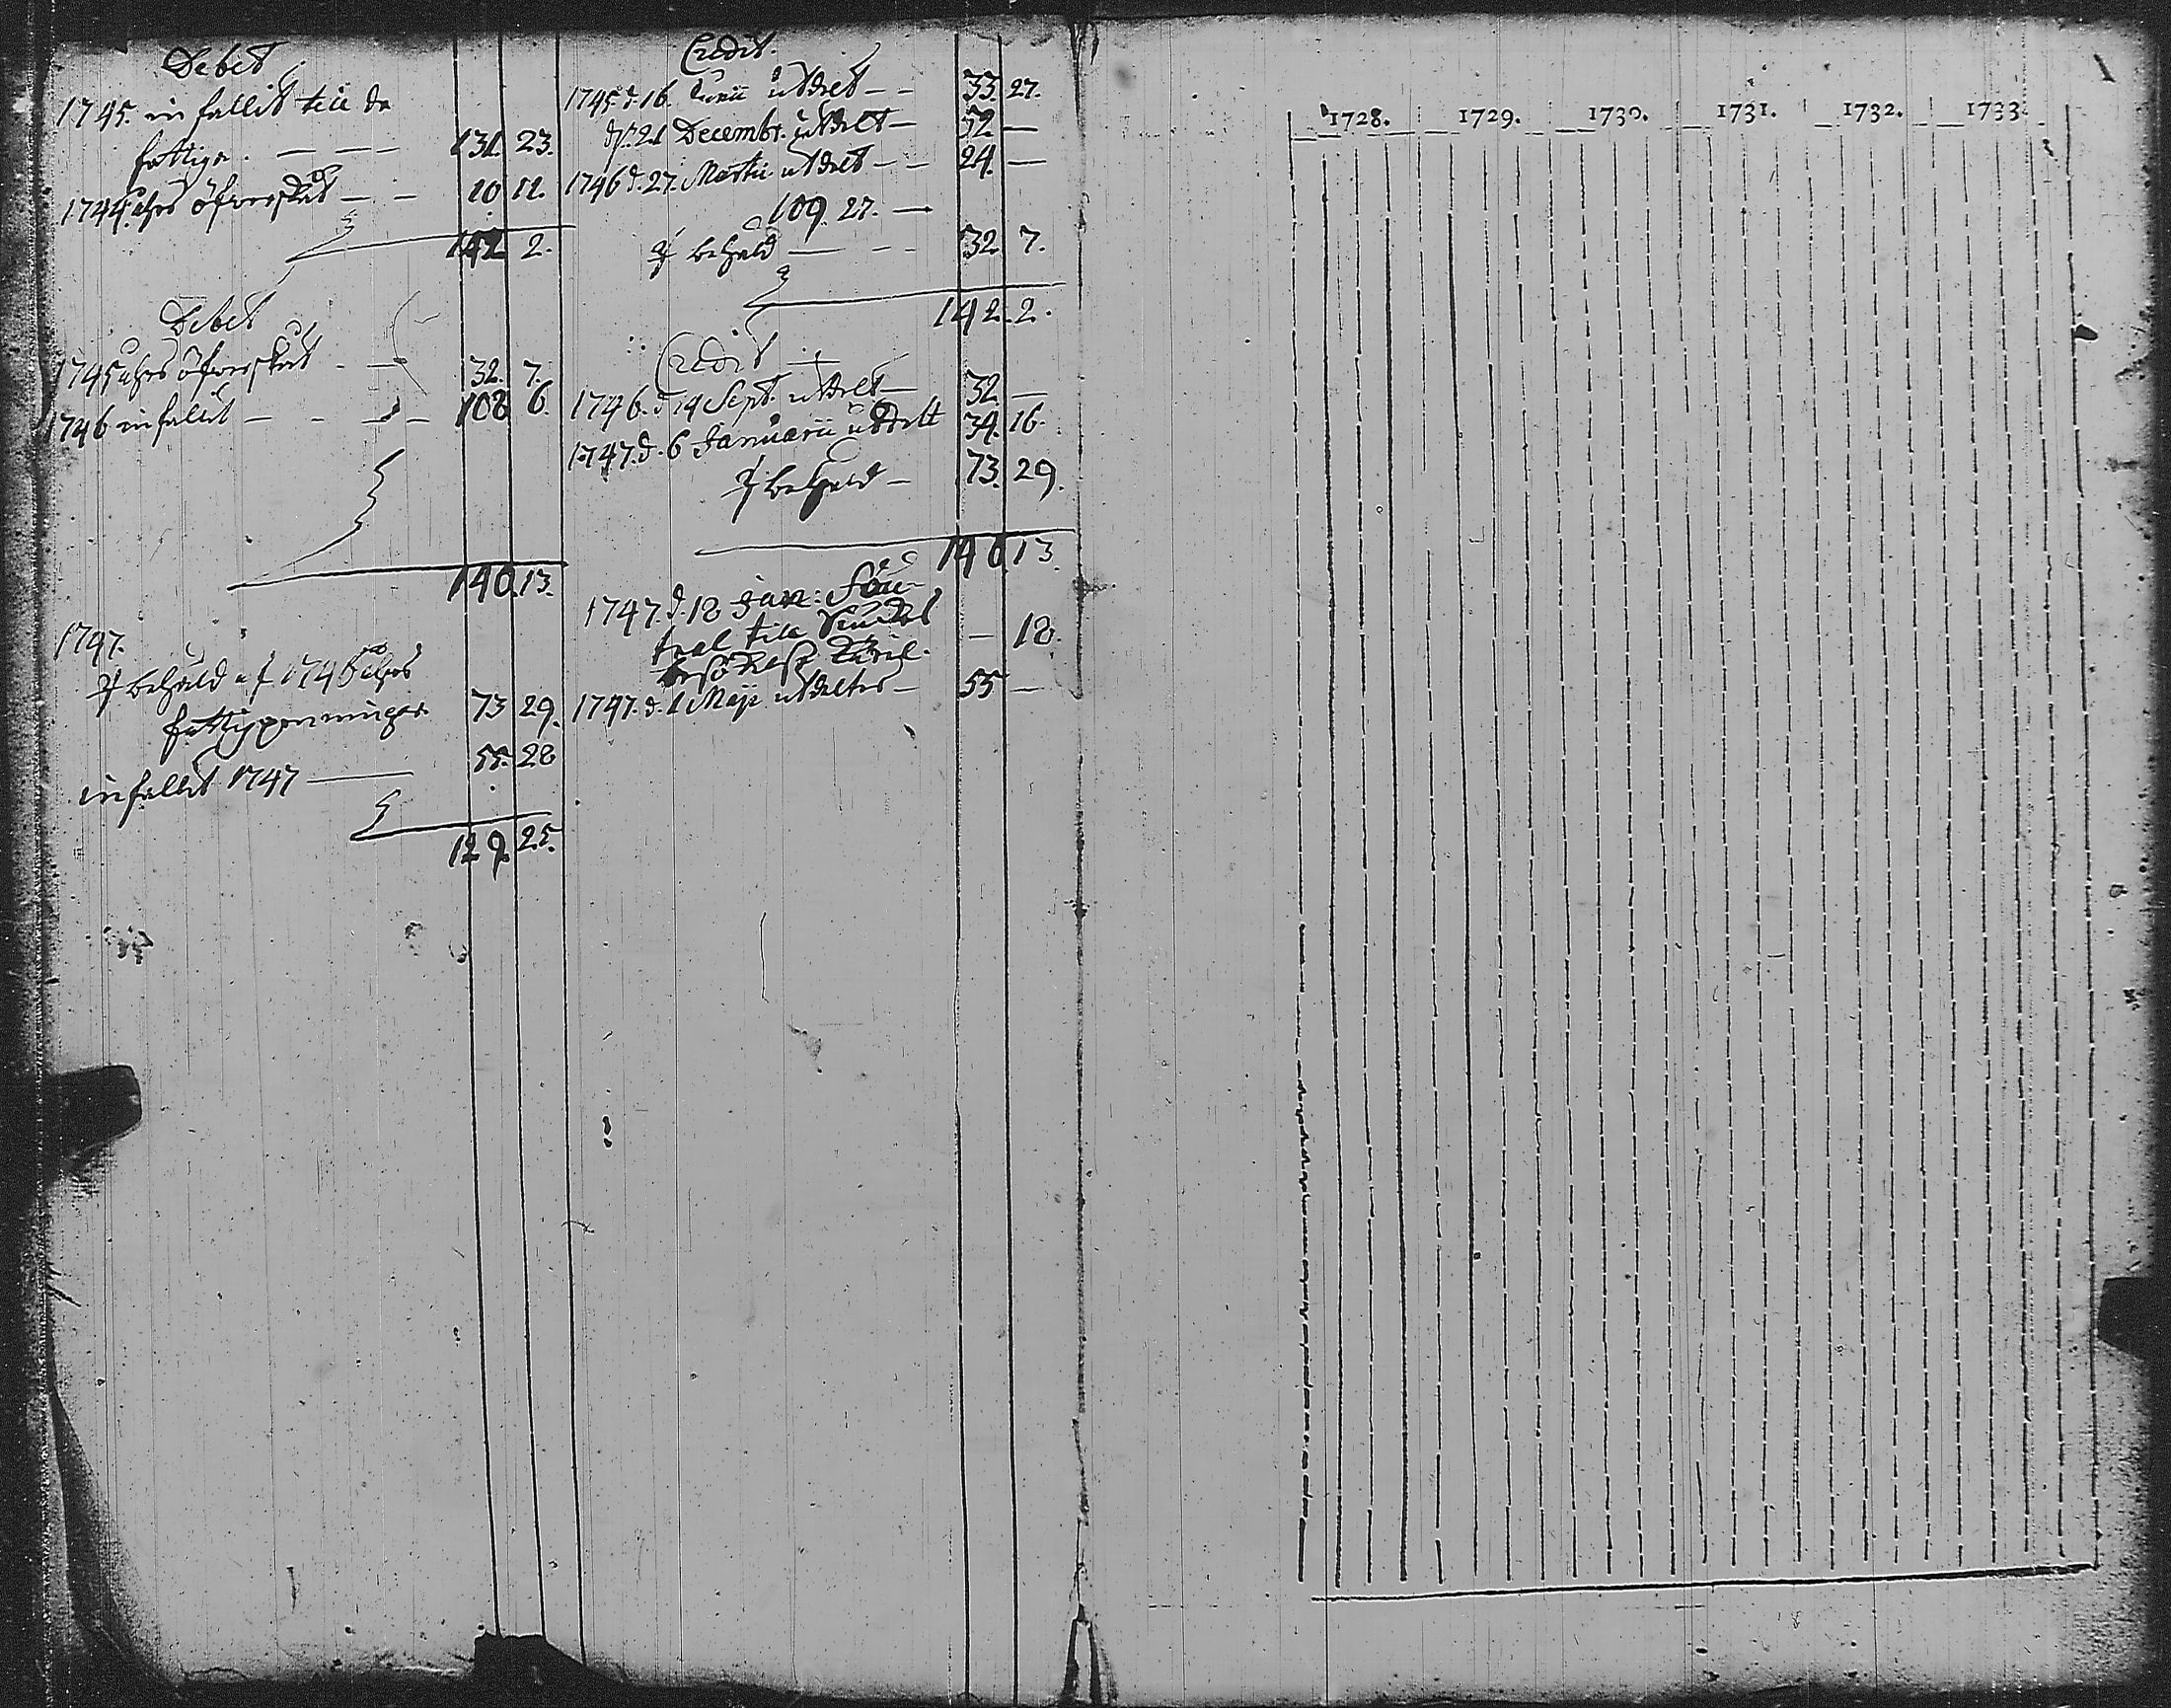 Debet
1745. infallit till de
fattiga. — — — 131. 23.
1744 åhrs öfwerskåt — — 10 11.
142 2.
Debet
1745 åhrs öfwerskut . — 32. 7.
1746 infallit — - - — 108 6.
140. 13.
1747.
behåld af 1746 åhrs
fattigpenningar 73 29.
infallit 1747 — 55. 28
129. 25.
Credit.
1745 d. 16. Junii utdelt — - 33. 27.
d. 21 Decembr. utdelt — 52 —
1746 d. 27. Martii utdelt — - 24. —
109. 27. —
behåld — - - 32. 7.
142. 2.
Credit
1746. d 14 Sept. utdelt — 32 —
1747. d. 6 Januarii utdelt 34. 16.
behåld — 73. 29.
140 13.
1747. d. 18 Jan:
till — 18.
1747. d. 1 Maji utdeltes — 55 —
1728. 1729. 1730. 1731. 1732. 1733.